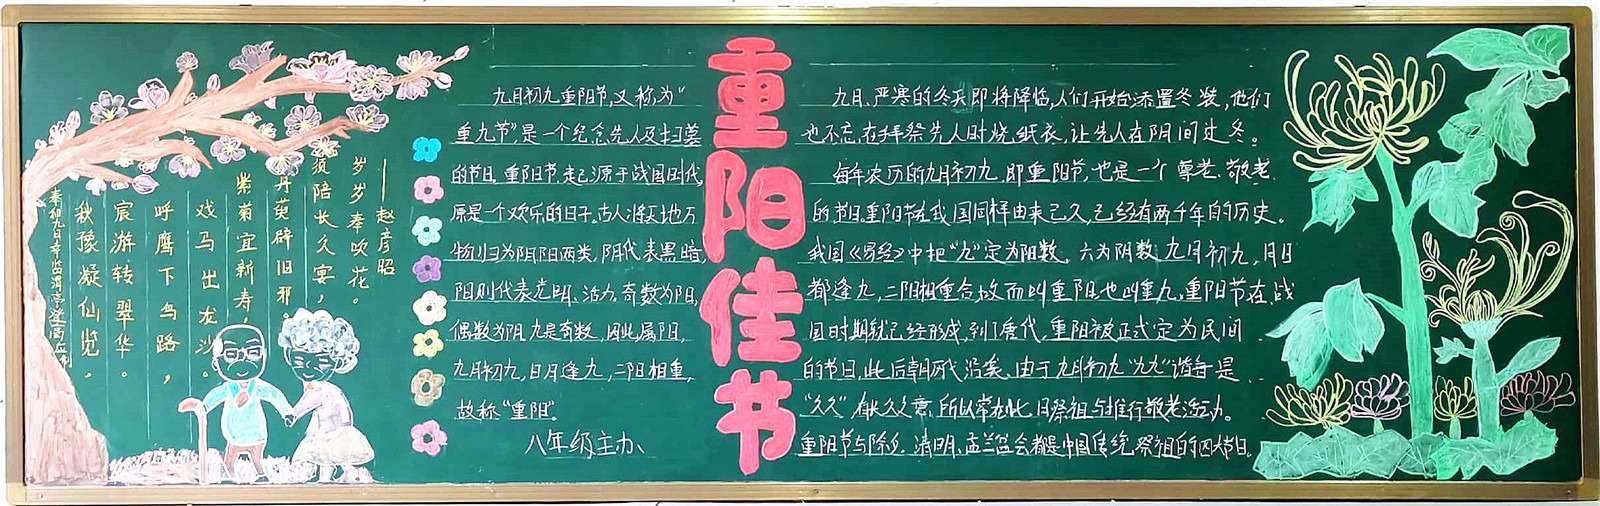 奉和九日幸临渭亭登高应制
秋豫凝仙览，
宸游转翠华。
呼鹰下鸟路，
戏马出龙沙。
紫菊宜新寿，
丹萸辟旧邪。
须陪长久宴，
岁岁奉吹花。
——赵彦昭
九月初九重阳节，又称为“
重九节”，是一个纪念先人及扫墓
的节日。重阳节，起源于战国时代，
原是一个欢乐的日子。古人将天地万
物归为阴阳两类，阴代表黑暗，
阳则代表光明、活力。奇数为阳，
偶数为阴。九是奇数，因此属阳，
九月初九，日月逢九，二阳相重，
故称“重阳”。
八年级主办
重阳佳节
九月、严寒的冬天即将降临，人们开始添置冬装，他们
也不忘在拜祭先人时烧纸衣，让先人在阴间过冬。
每年农历的九月初九，即重阳节，也是一个尊老、敬老
的节日。重阳节在我国同样由来已久，已经有两千年的历史。
我国《易经》中把“九”定为阳数，六为阴数，九月初九，月日
都逢九，二阳相重合，故而叫重阳也叫重九。重阳节在战
国时期就已经形成，到了唐代，重阳被正式定为民间
的节日，此后朝历代沿袭。由于九月初九“九九”谐音是
“久久”有长久之意，所以常在此日祭祖与推行敬老活动。
重阳节与除夕、清明、盂兰盆会都是中国传统祭祖的四大节日。